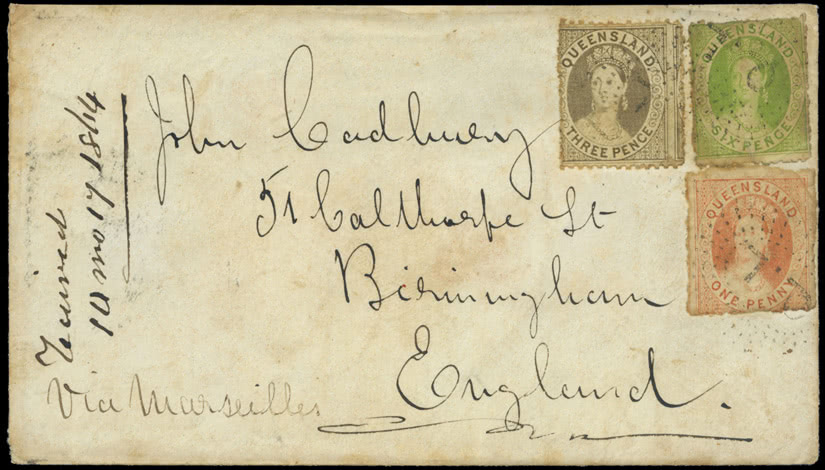 John Cadbury
51 Calthorpe St
Birmingham
England.
Via Marseilles
10 mo 17 1864
QUEENSLAND
THREE PENCE
QUEENSLAND
SIX PENCE
QUEENSLAND
ONE PENNY